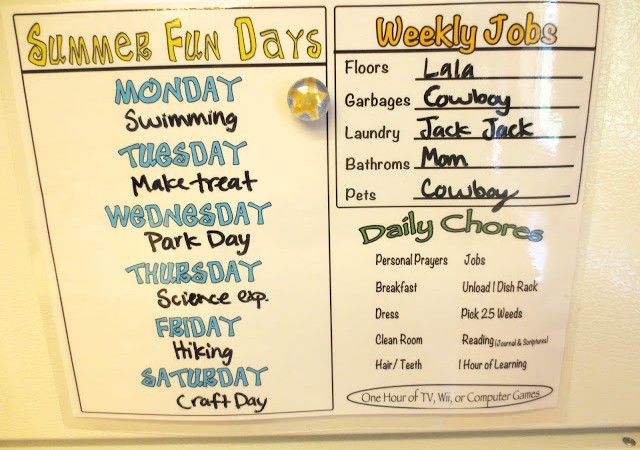 Summer Fun Days
Monday
Swimming
Tuesday
Make treat
Wednesday
Park Day
Thursday
Science exp.
Friday
Hiking
Saturday
Craft Day
Weekly Jobs
Floors Lala
Garbages Cowboy
Laundry Jack Jack
Bathroms Mom
Pets Cowboy
Daily Chores
Personal Prayers Jobs
Breakfast Unload 1 Dish Rack
Dress Pick 25 Weeds
Clean Room Reading (Journal & Scriptures)
Hair/ Teeth 1 Hour of Learning
One Hour of TV, Wii, or Computer Games